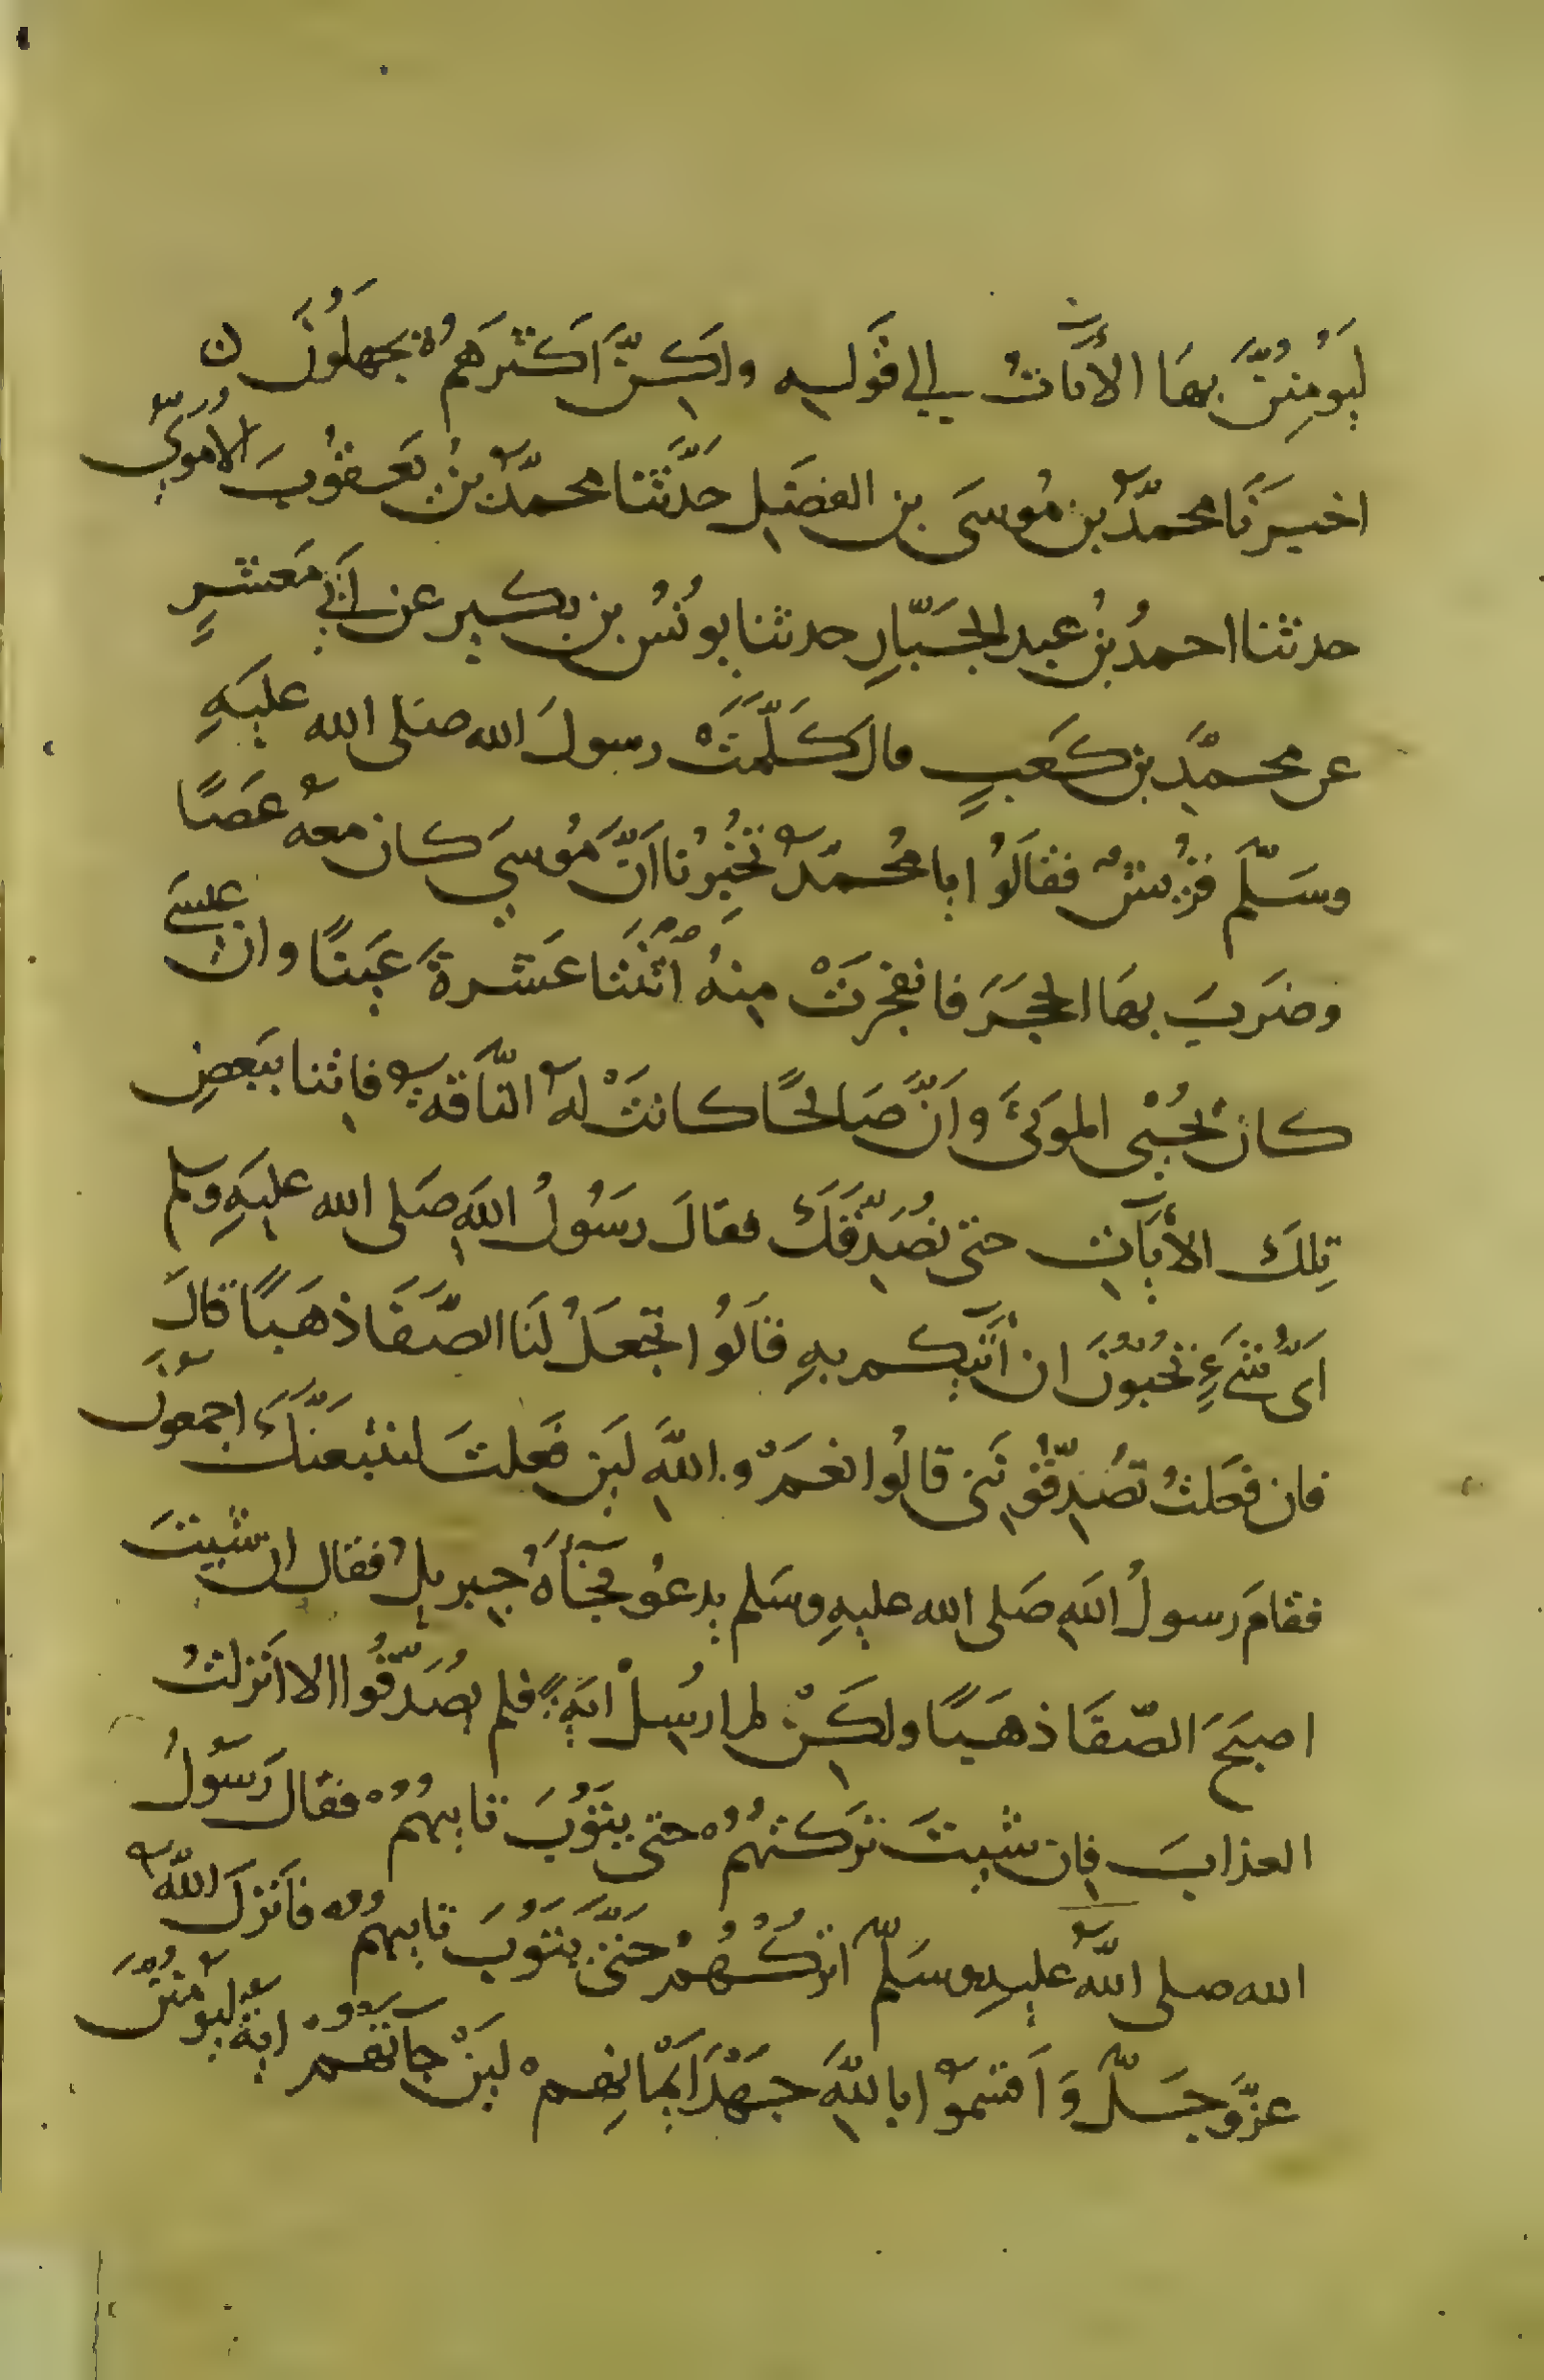 ليُومِنُنَّ بها الأياتُ الي قَوله ولكنَّ اكثرَهم يجهلُونَ ن
اخبرنَا محمدُ بن مُوسَى بن الفضَل حدَّثنا محمدُ بنُ يَعقُوبَ الاموِيُّ
حدثنا احمدُ بنُ عبد الجَبّارِ حدثنا يونُسُ بن بكير عن اَبي مَعشرٍ
عن محمَّد بن كعَبٍ قال كَلَّمَتْ رسولَ الله صلى الله عليهِ
وسَلّم قريشٌ فقالَوُا يا محُمّدُ تُخبِرُنا اَنَّ مُوسيَ كان معهُ عَصًا
وضَربَ بها الحجَرَ فانفجرَتْ مِنهُ اثنَتا عَشرةَ عَينًا وان عيسَى
كان يُحْيى الموتىَ وَاَنَّ صَالحًا كانتْ لهُ النّاقةُ فاتنا ببَعضِ
تِلكَ الأياَتِ حتى نُصَدِّقَكَ فقالَ رسَوُلُ اللهِ صَلى الله عليهِ وسلم
اَىُّ شىءٍ تحُبّوُنَ ان اَتيكم بهِ قالَوُا تجعَلُ لنَا الصَّفَا ذهَبًا قالَ
فان فعَلتُ تُصَدِّقُونَنى قالُوا نعَمْ واللهِ لَين فعَلتَ لنتبعَنَّكَ اجمعونَ
فقامَ رسولُ اللهِ صَلى الله عليهِ وسَلم يدعوُ فجآأهُ جبريلُ فقال ان شيتَ
اصبَحَ الصّفَا ذهَبًا ولكنْ لم ارسِلْ ايةً فلم يُصَدِّقُوا الا اَنزلتُ
العذابَ فان شيتَ تركتهُمْ حتى يتوُبَ تايبهُمْ فقالَ رَسوَلُ
الله صلى اللهُ عليهِ وسَلّم اتركُهُمْ حتىَّ يتوُبَ تايبهم فاَنزلَ اللهُ
عزَّوَجَلَّ وَاَقسَموُا باللهِ جهَدَ ايَمانِهم لَينْ جاَتهُمْ ايةٌ ليوُمنُنَّ